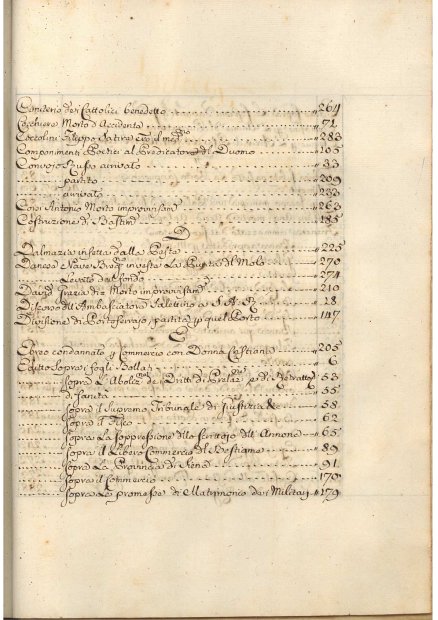 Cimiterio dei Cattolici benedetto 264
Cocchiere Morto d'Accidente 71
Coccolini Filippo Satira 283
Componimenti Poetici al Predicatore del Duomo 105
Convoio Russo arrivato 33
partito 209
arrivato 233
Antonio Morto improvisam.te 263
Costruzione di Bastim.ti 185
D
Dalmazia infetta dalla Peste 225
Danese Nave investe La Punta del Molo 270
Levata dal fondo 274
Morto improvisam.te 210
Discorso dell'Ambasciatore Salettino a S.A.R. 18
Divisione di Portoferraio, partita p quel Porto 147
E
Ebreo condannato p Commercio con Donna Cristiana 205
Editto Sopra i fogli Bollati 6
Sopra L'Aboliz.ne dei Dritti di 53
di Sanita 55
Sopra il Supremo Tribunale di Giustizia & 58
Sopra il Fisco 62
Sopra La Soppressione dello Scrittoio dell'Annona 65
Sopra il Libero Commercio del Bestiame 89
Sopra La Provincia di Siena 91
Sopra il Commercio 170
Sopra La promessa di Matrimonio dei Militari 179